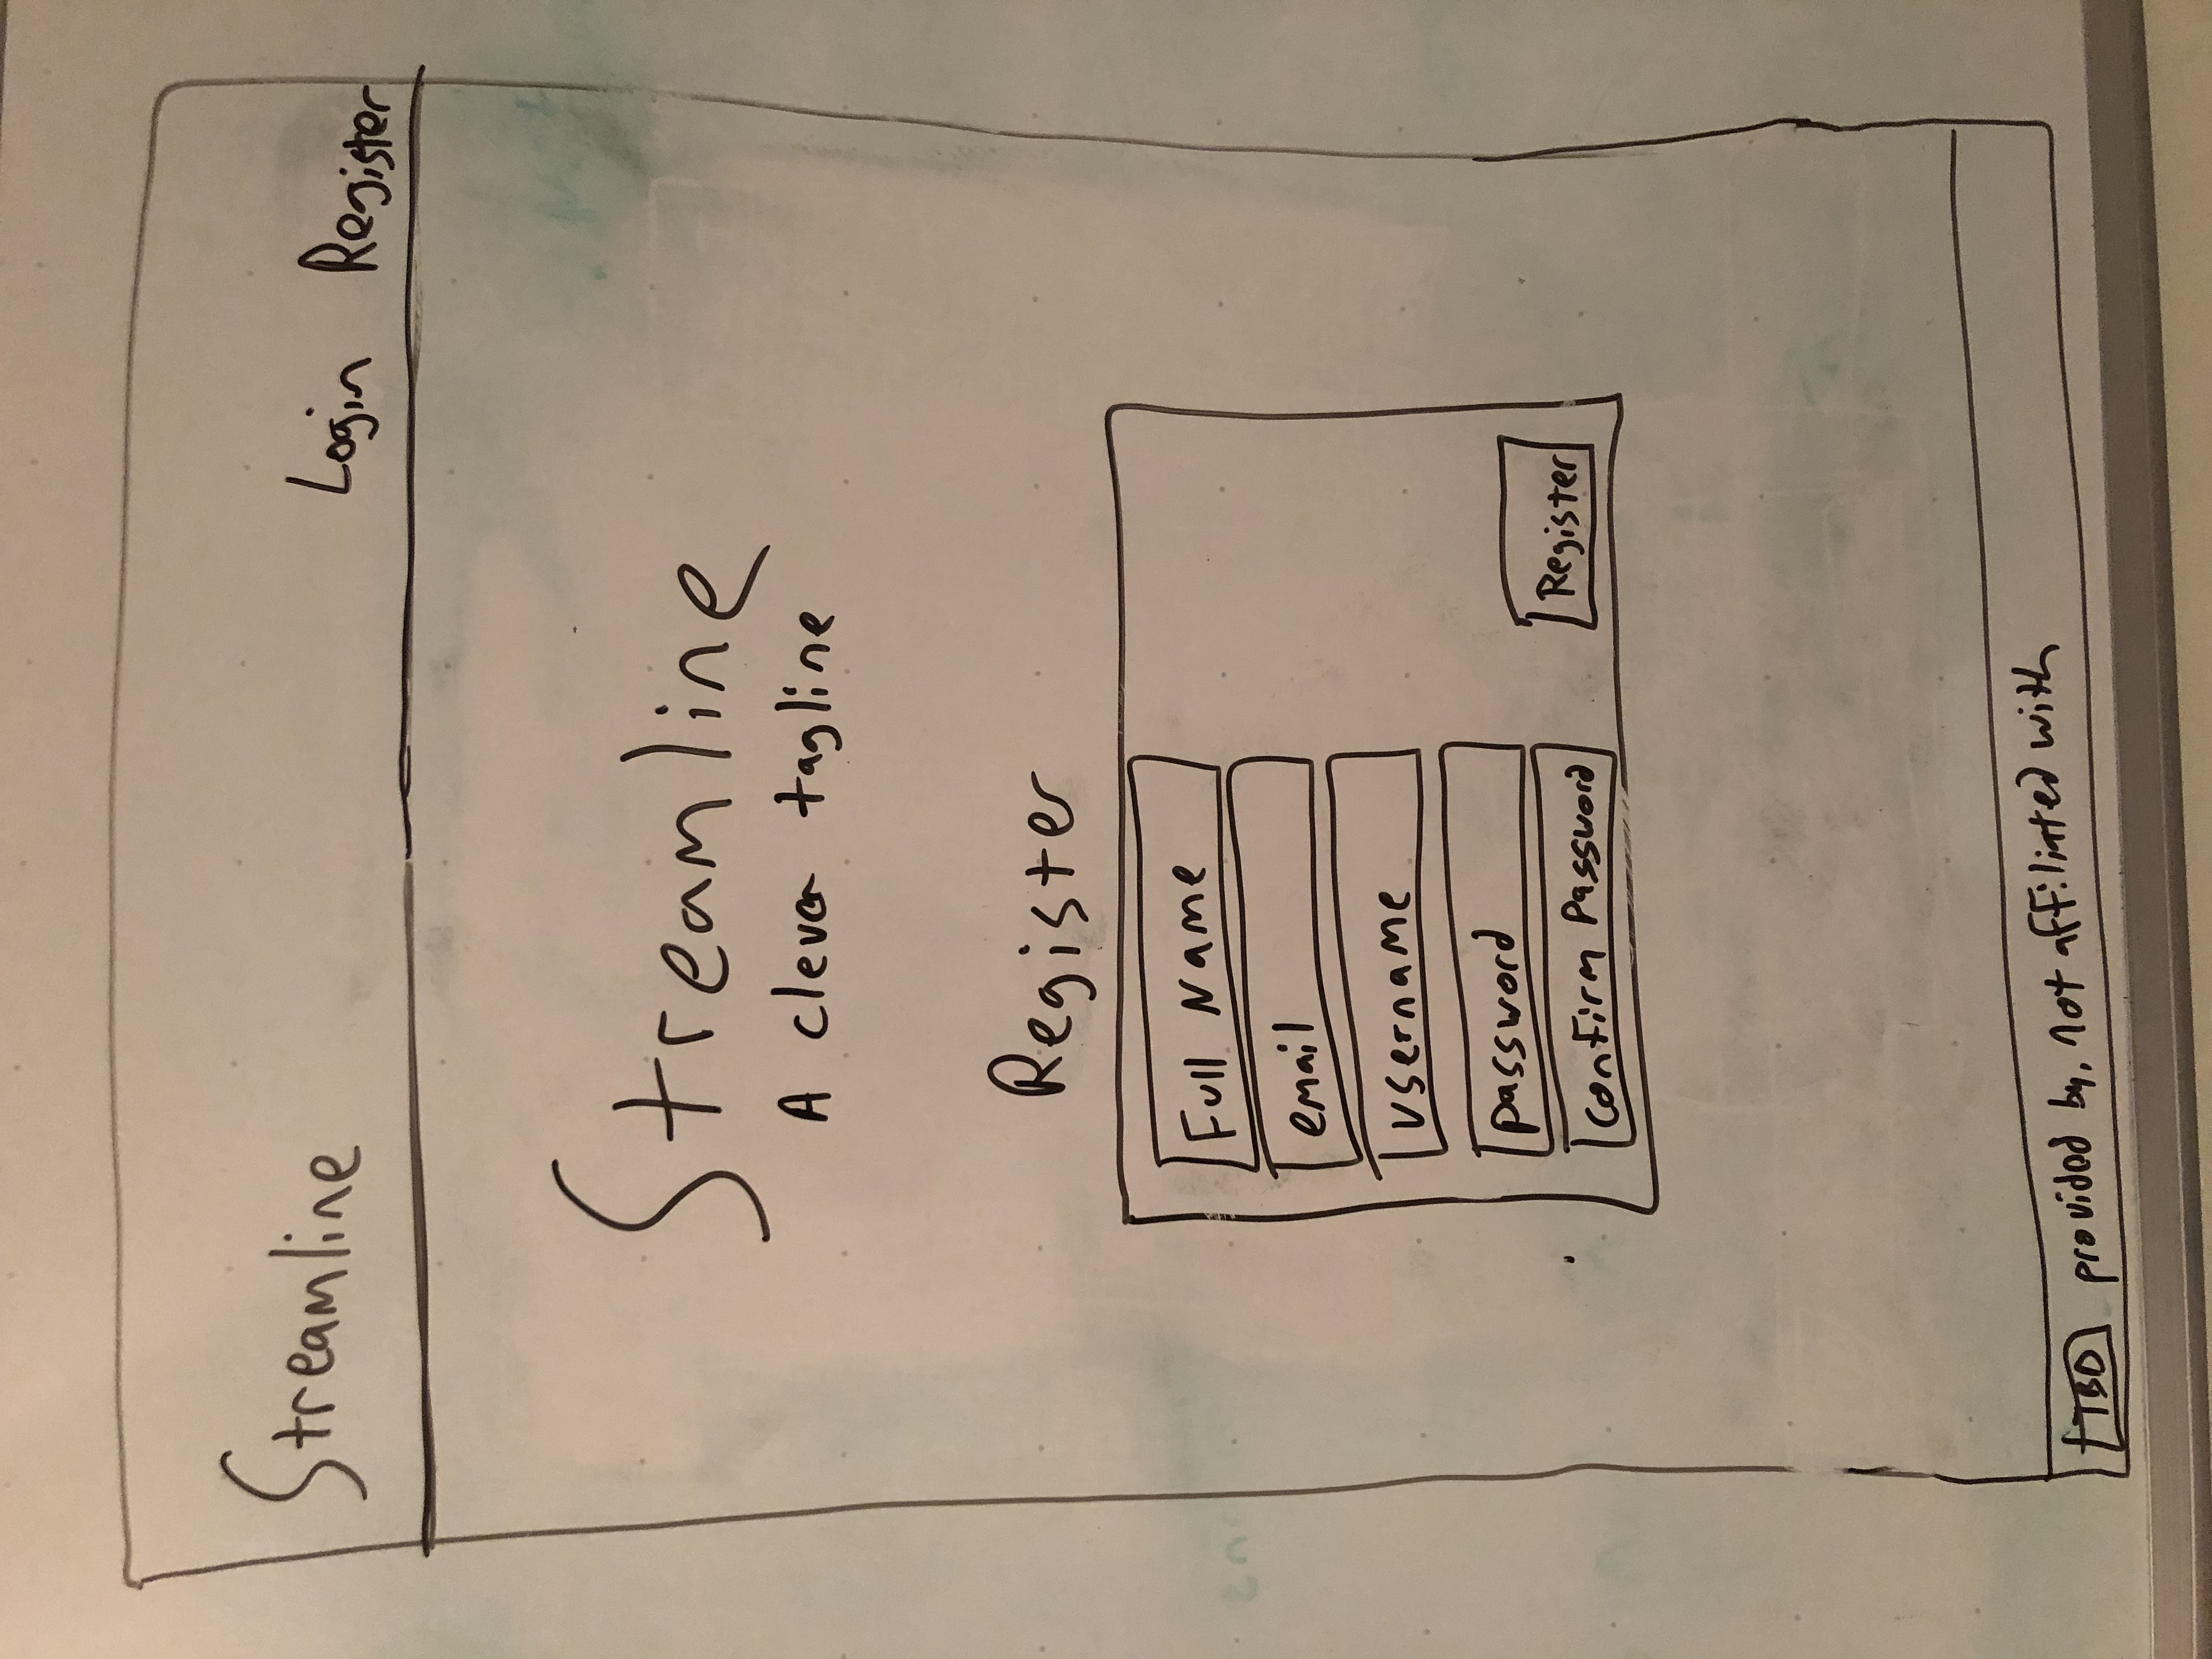 Streamline
Login Register
Streamline
A clever tagline
Register
Full Name
email
username
password
confirm Password
Register
TBD provided by, not affiliated with